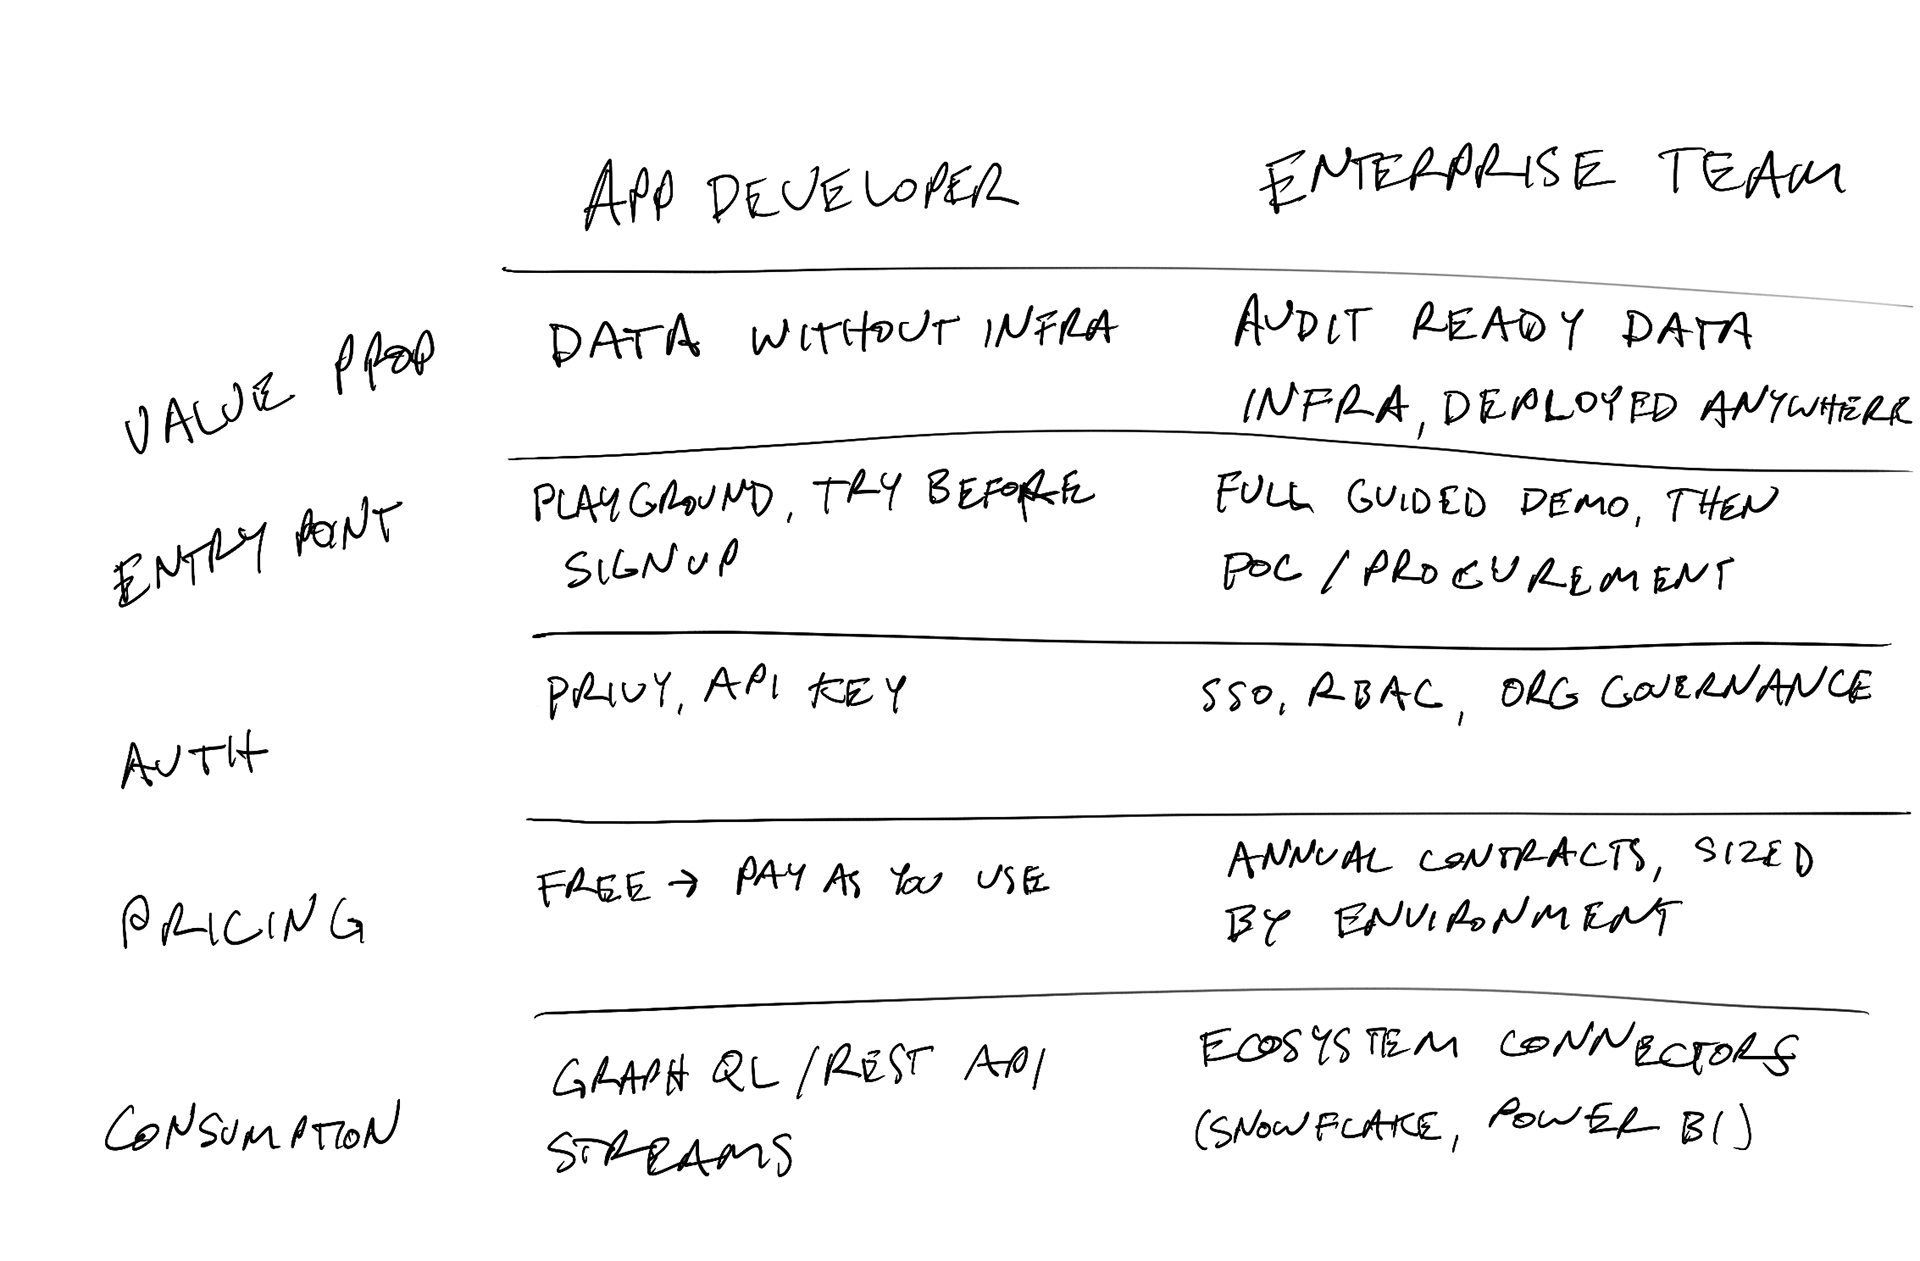 APP DEVELOPER ENTERPRISE TEAM
VALUE PROP DATA WITHOUT INFRA AUDIT READY DATA
INFRA, DEPLOYED ANYWHERE
ENTRY POINT PLAYGROUND, TRY BEFORE FULL GUIDED DEMO, THEN
SIGN UP POC / PROCUREMENT
AUTH PRIVY, API KEY SSO, RBAC, ORG GOVERNANCE
PRICING FREE → PAY AS YOU USE ANNUAL CONTRACTS, SIZED
BY ENVIRONMENT
CONSUMPTION GRAPH QL / REST API ECOSYSTEM CONNECTORS
STREAMS (SNOWFLAKE, POWER BI)